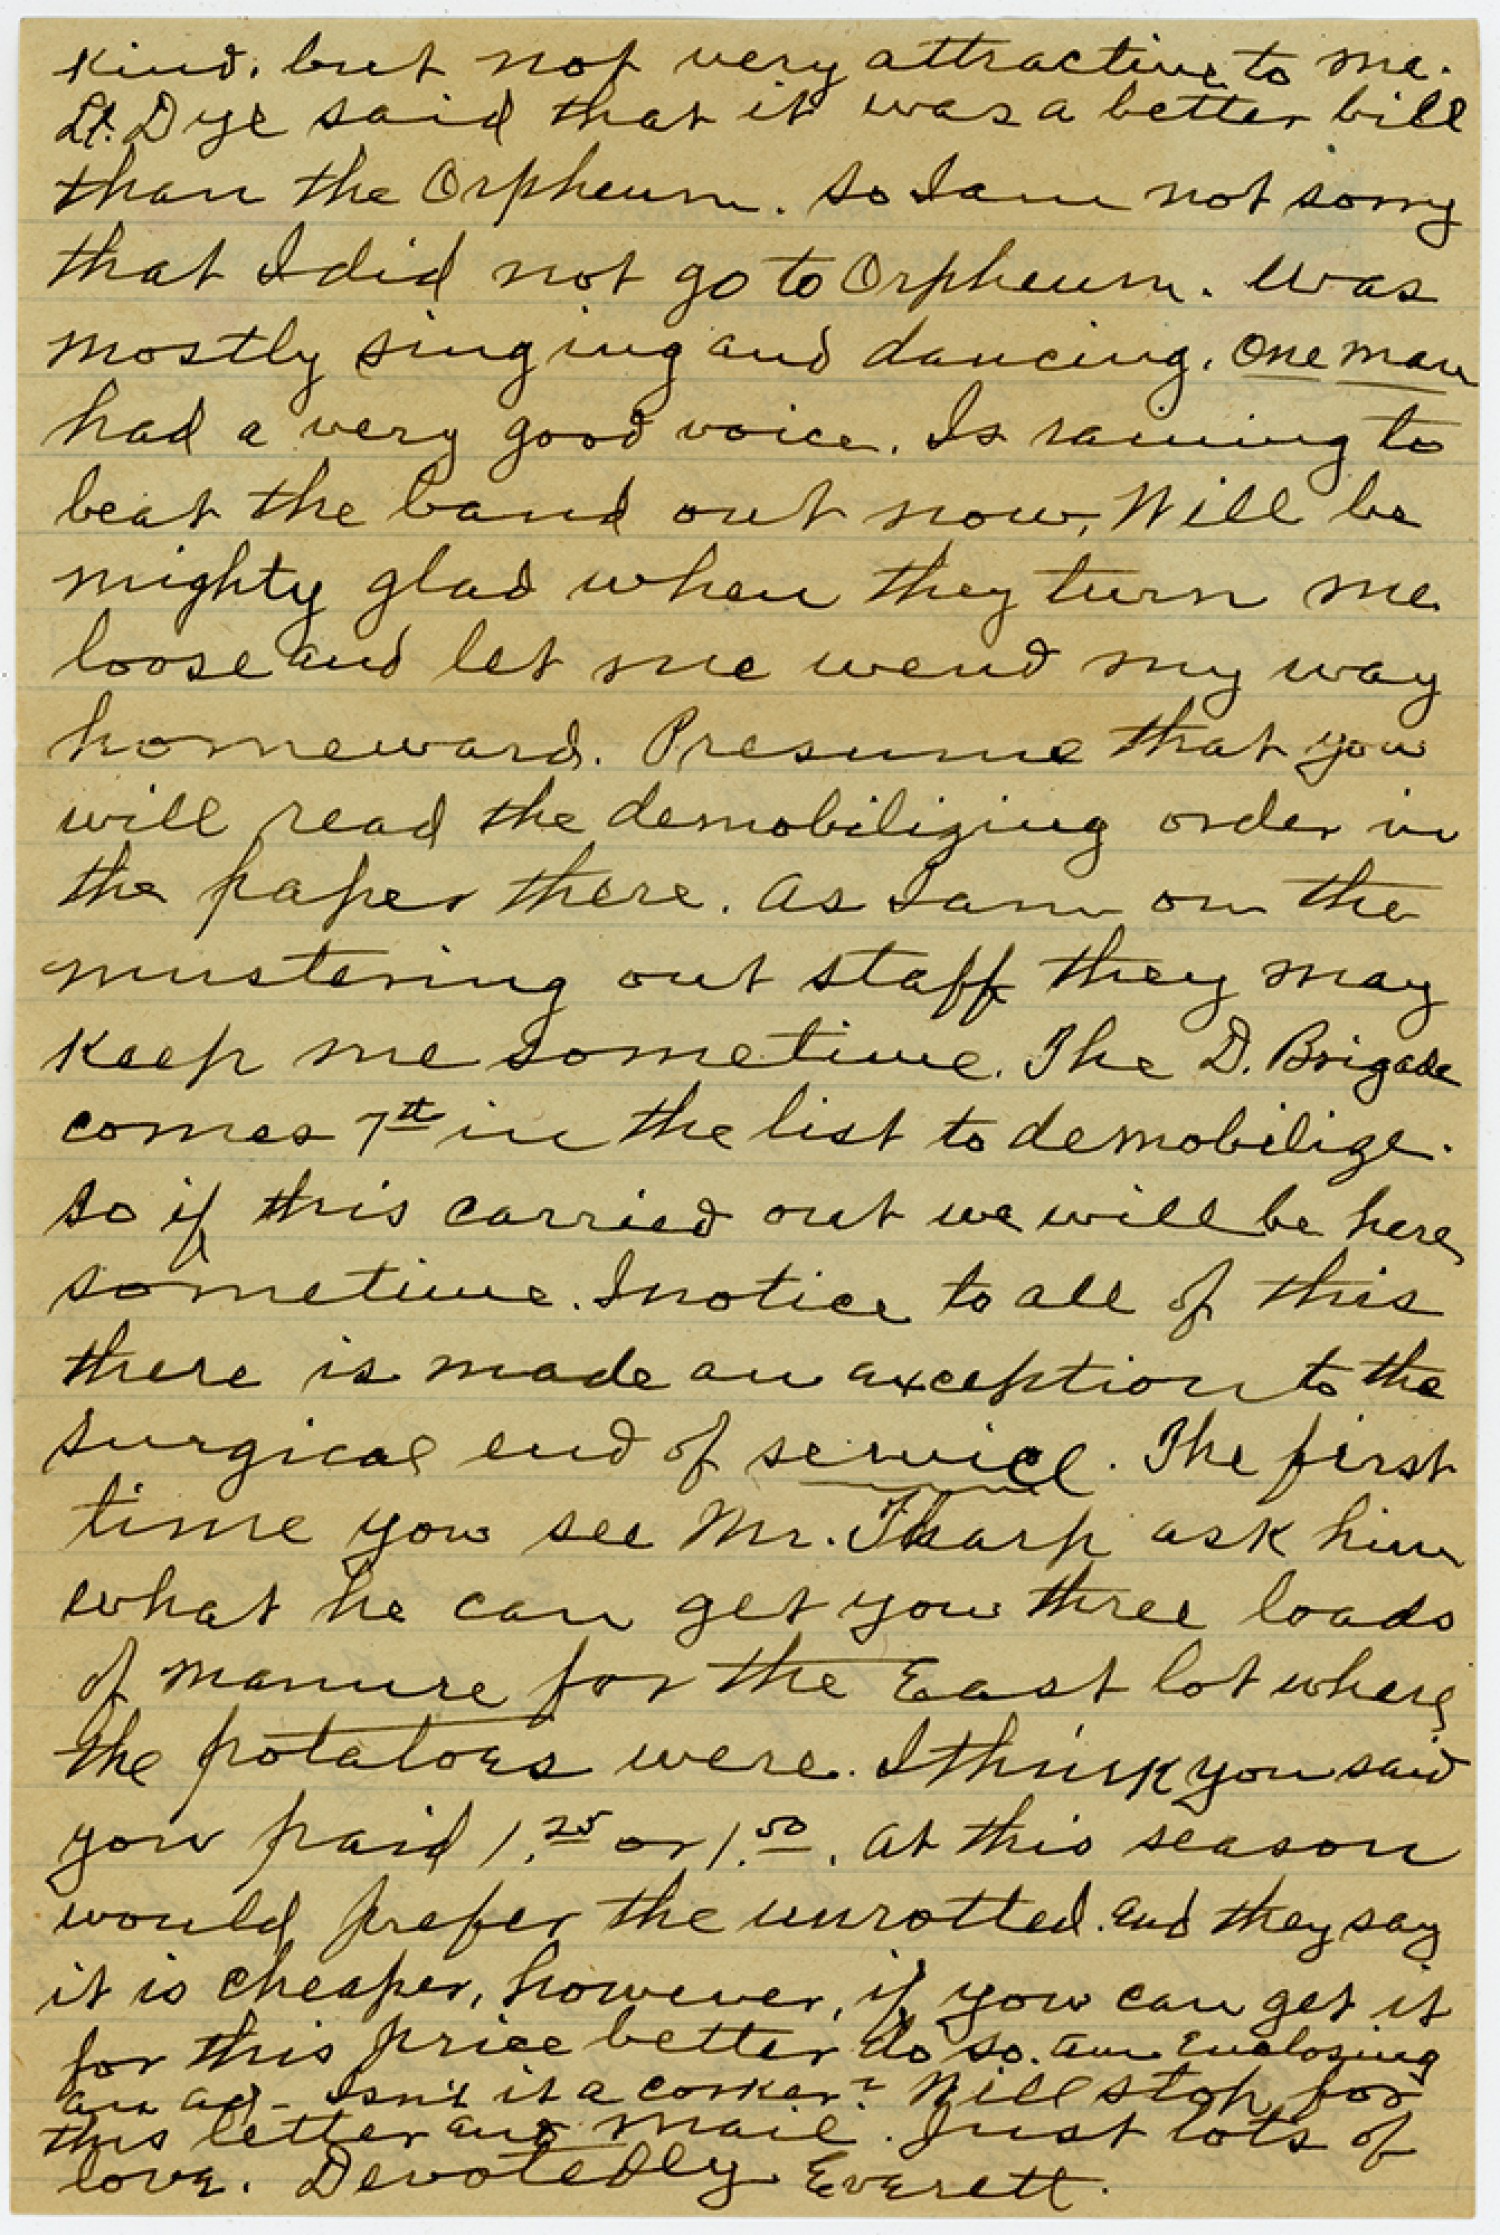 kind. but not very attractive to me.
Lt. Dye said that it was a better bill
than the Orpheum. So I am not sorry
that I did not go to Orpheum. Was
mostly singing and dancing. One man
had a very good voice. Is raining to
beat the band out now. Will be
mighty glad when they turn me
loose and let me wend my way
homeward. Presume that you
will read the demobilizing order in
the paper there. As I am on the
mustering out staff they may
keep me sometime. The D. Brigade
comes 7th in the list to demobilize.
So if this carried out we will be here
sometime. I notice to all of this
there is made an exception to the
surgical end of service. The first
time you see Mr. Tharp ask him
what he can get you three loads
of manure for the East lot where
the potatoes were. I think you said
you paid 1.25 or 1.50. At this season
would prefer the unrotted. and they say
it is cheaper, however, if you can get it
for this price better do so. Am Enclosing
an ad - Isn't it a corker? Will stop for
this letter and mail. Just lots of
love. Devotedly Everett.